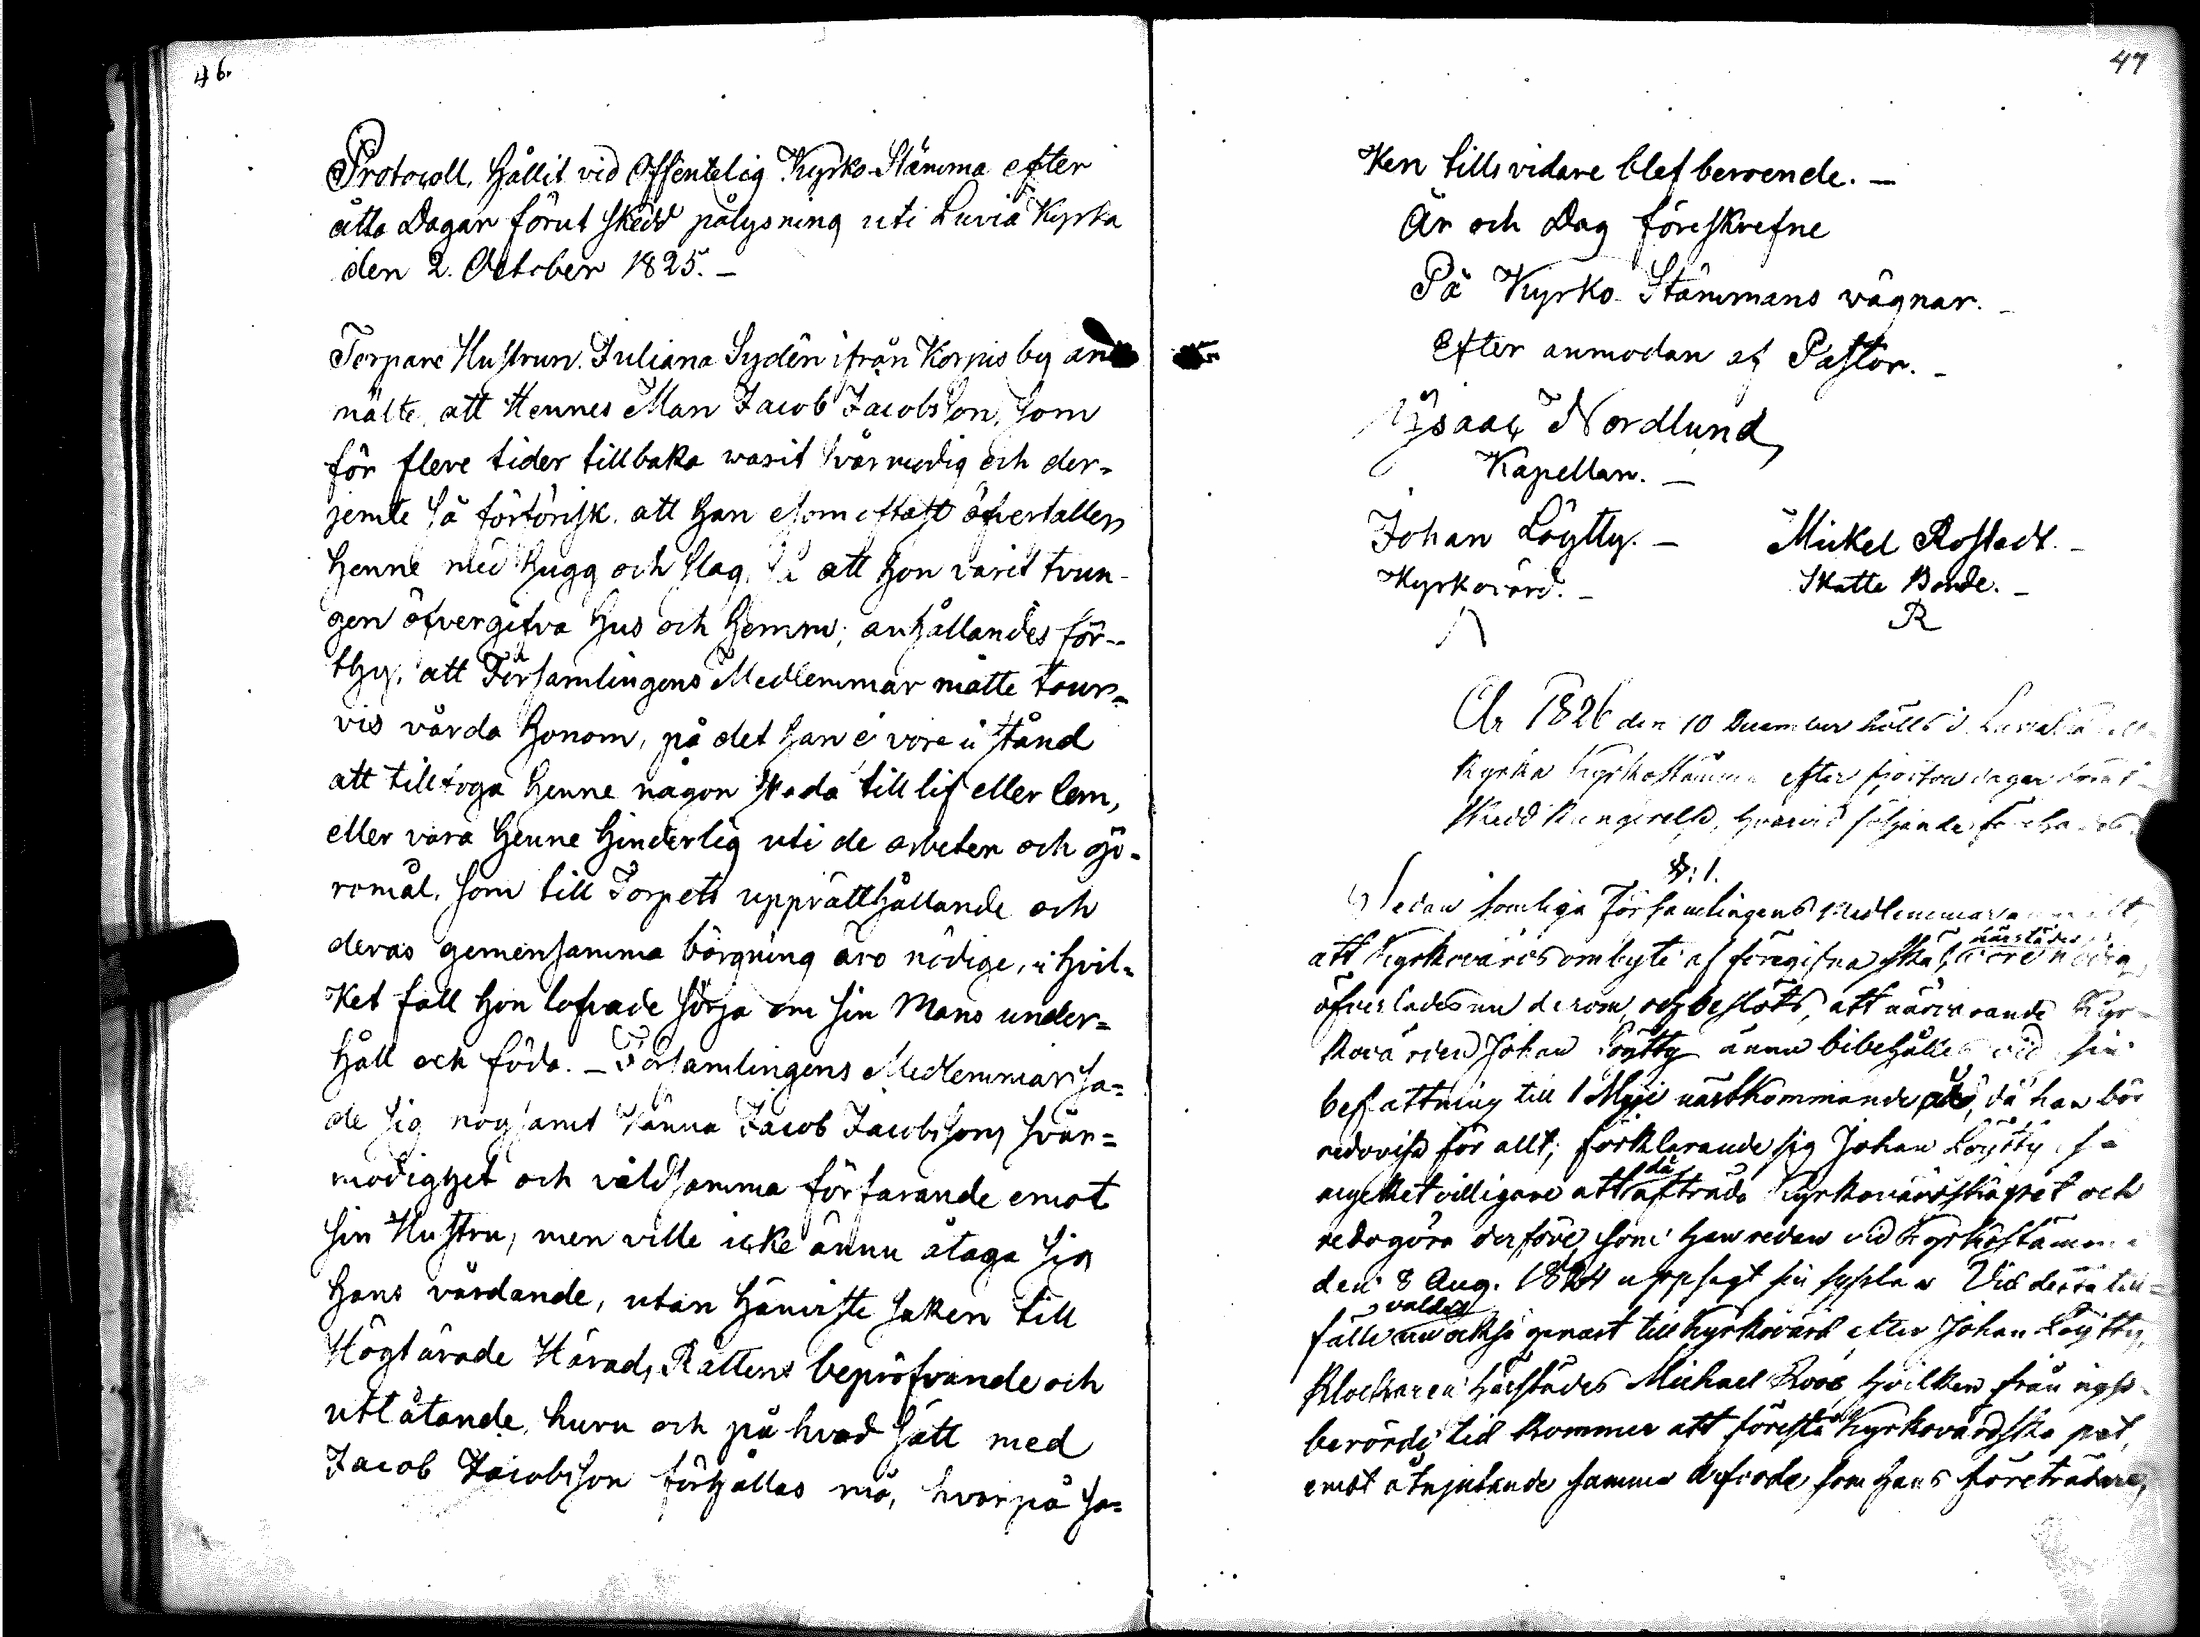 46.
Protocoll, hållit vid Offentelig Kyrko-Stämma efter
åtta Dagar förut skedd pålysning uti Luvia Kyrka
den 2. October 1825. –
Torpare Hustrun Juliana Sydên ifrån Korpis by an
mälte, att Hennes Man Jacob Jacobsson, som
för flere tider tillbaka warit svårmodig och der-
jemte så förtörisk, att han esomoftast öfverfaller
henne med hugg och slag, så att hon varit tvun-
gen öfvergifva hus och hemm; anhållandes för-
thy, att Församlingens Medlemmar måtte tour-
vis vårda honom, på det han ei vore i stånd
att tillfoga henne någon skada till lif eller lem,
eller vara henne hinderlig uti de arbeten och gjö-
romål, som till Torpets upprätthållande och
deras gemensamma bärgning äro nödige, i hvil-
ket fall hon lofvade sörja om sin Mans under-
håll och föda. – Församlingens Medlemmar sa-
de sig nogsamt känna Jacob Jacobssons svår-
modighet och våldsamma förfarande emot
sin Hustru, men ville icke ännu åtaga sig
hans vårdande, utan hänviste saken till
Högtärade Härads Rättens bepröfvande och
utlåtande, huru och på hvad sätt med
Jacob Jacobsson förhållas må, hvarpå sa-
47
ken tills vidare blef beroende. –
År och Dag föreskrefne
På Kyrko-Stämmans vägnar. –
Efter anmodan af Pastor. –
Isaac Nordlund
Kapellan. –
Johan Löytty. – Mickel Rostedt. –
Kyrkovärd. – Skatte Bonde. –
R
År 1826 den 10 December hölls i Luvia
Kyrka Kyrkostämma efter fjorton dagar förut
skedd kungörelse, hvarvid följande
§: 1.
Sedan somliga Församlingens Medlemmar
att Kyrkovärds ombyte af föregifna skäl härstädes vore nödig,
öfverlades nu derom, och beslöts, att närvarande Kyr-
kovärden Johan Löytty ännu bibehålles vid sin
befattning till 1 Maji nästkommande år, då han bör
redovisa för allt; förklarande sig Johan Löytty så
mycket villigare att då afträda Kyrkovärdskapet och
redogöra derföre, som han redan vid Kyrkostämma
den 8 Aug. 1824 uppsagt sin syssla. Vid detta till-
fälle valdes nu också genast till Kyrkovärd efter Johan Löytty,
Klockaren härstädes Michael Roos hvilken från
berörde tid kommer att förestå Kyrkovärdskapet,
emot åtnjutande samma som hans företrädare,